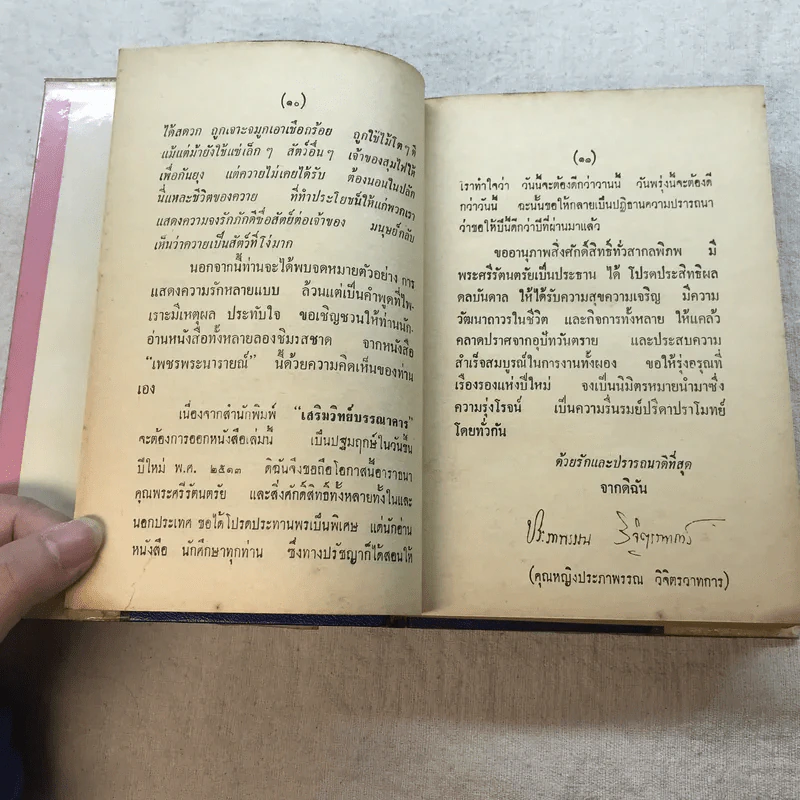 (๑๐)
ได้สดวก ถูกเจาะจมูกเอาเชือกร้อย ถูกใช้ไม้โตๆ ตี
แม้แต่ม้ายังใช้แซ่เล็กๆ สัตว์อื่นๆ เจ้าของสุมไฟให้
เพื่อกันยุง แต่ควายไม่เคยได้รับ ต้องนอนในปลัก
นี่แหละชีวิตของควาย ที่ทำประโยชน์ให้แก่พวกเรา
แสดงความจงรักภักดีซื่อสัตย์ต่อเจ้าของ มนุษย์กลับ
เห็นว่าควายเป็นสัตว์ที่โง่มาก
นอกจากนี้ท่านจะได้พบจดหมายตัวอย่าง การ
แสดงความรักหลายแบบ ล้วนแต่เป็นคำพูดที่ไพ-
เราะมีเหตุผล ประทับใจ ขอเชิญชวนให้ท่านนัก-
อ่านหนังสือทั้งหลายลองชิมรสชาด จากหนังสือ
"เพชรพระนารายณ์" นี้ด้วยความคิดเห็นของท่าน
เอง
เนื่องจากสำนักพิมพ์ "เสริมวิทย์บรรณาคาร"
จะต้องการออกหนังสือเล่มนี้ เป็นปฐมฤกษ์ในวันขึ้น
ปีใหม่ พ.ศ. ๒๕๑๓ ดิฉันจึงขอถือโอกาสนี้อาราธนา
คุณพระศรีรัตนตรัย และสิ่งศักดิ์สิทธิ์ทั้งหลายทั้งในและ
นอกประเทศ ขอได้โปรดประทานพรเป็นพิเศษ แด่นักอ่าน
หนังสือ นักศึกษาทุกท่าน ซึ่งทางปรัชญาก็ได้สอนให้
(๑๑)
เราทำใจว่า วันนี้จะต้องดีกว่าวานนี้ วันพรุ่งนี้จะต้องดี
กว่าวันนี้ ฉะนั้นขอให้กลายเป็นปฏิธานความปรารถนา
ว่าขอให้ปีนี้ดีกว่าปีที่ผ่านมาแล้ว
ขออานุภาพสิ่งศักดิ์สิทธิ์ทั่วสากลพิภพ มี
พระศรีรัตนตรัยเป็นประธาน ได้ โปรดประสิทธิผล
ดลบันดาล ให้ได้รับความสุขความเจริญ มีความ
วัฒนาถาวรในชีวิต และกิจการทั้งหลาย ให้แคล้ว
คลาดปราศจากอุปัทวันตราย และประสบความ
สำเร็จสมบูรณ์ในการงานทั้งผอง ขอให้รุ่งอรุณที่
เรืองรองแห่งปีใหม่ จงเป็นนิมิตรหมายนำมาซึ่ง
ความรุ่งโรจน์ เป็นความรื่นรมย์ปรีดาปราโมทย์
โดยทั่วกัน
ด้วยรักและปรารถนาดีที่สุด
จากดิฉัน
ประภาพรรณ วิจิตรวาทการ
(คุณหญิงประภาพรรณ วิจิตรวาทการ)